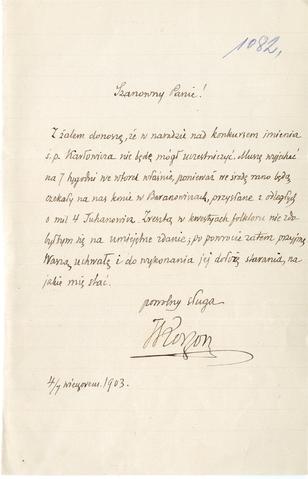 1082,
Szanowny Panie!
Z żalem donoszę, że w naradzie nad konkursem imienia
ś.p. Karłowicza nie będę mógł uczestniczyć. Muszę wyjechać
na 7 tygodni we wtorek właśnie, ponieważ we środę rano będą
czekały na nas konie w Baranowiczach, przysłane z odległych
o mil 4 Juhanowicz. Zresztą w kwestyach folkloru nie zdo-
byłbym się na umiejętne zdanie; po powrocie zatem przyjmę
Waszą uchwałę i do wykonania jej dołożę starania, na
jakie mię stać.
powolny sługa
TKorzon
4/7 1903.